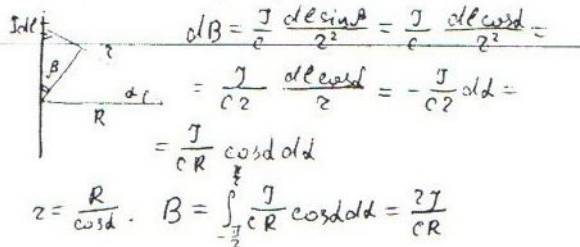 Idl
r
β
α
R
dB = I/c dl sinβ/r² = I/c dl cosα/r² =
= I/cr dl cosα/r = - I/cr dα =
= I/cR cosα dα
r = R/cosα. B = ∫_{-π/2}^{π/2} I/cR cosα dα = 2I/cR